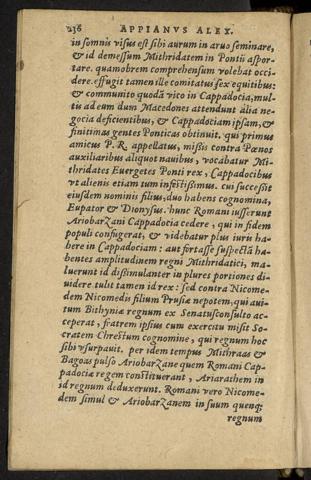 236 APPIANVS ALEX.
in somnis visus est sibi aurum in aruo seminare,
& id demessum Mithridatem in Pontū aspor-
tare. quamobrem comprehensum volebat occi
dere. effugit tamen ille comitatus sex equitibus:
& communito quodā vico in Cappadocia, mul-
tis ad eum dum Macedones attendunt alia ne-
gocia deficientibus, & Cappadociam ipsam, &
finitimas gentes Ponticas obtinuit, qui primus
amicus P. R. appellatus, missis contra Pœnos
auxiliaribus aliquot nauibus, vocabatur Mi-
thridates Euergetes Ponti rex, Cappadocibus
vt alienis etiam tum infestissimus. cui successit
eiusdem nominis filius, duo habens cognomina,
Eupator & Dionysus. hunc Romani iusserunt
Ariobarzani Cappadocia cedere, qui in fidem
populi confugerat, & videbatur plus iuris ha-
bere in Cappadociam: aut fortasse suspectā ha-
bentes amplitudinem regni Mithridatici, ma-
luerunt id dissimulanter in plures portiones di-
uidere tulit tamen id rex: sed contra Nicome-
dem Nicomedis filium Prusiæ nepotem, qui aui-
tum Bithyniæ regnum ex Senatusconsulto ac
ceperat, fratrem ipsius cum exercitu misit So-
cratem Chrestum cognomine, qui regnum hoc
sibi vsurpauit. per idem tempus Mithraas &
Bagoas pulso Ariobarzane quem Romani Cap-
padociæ regem constituerant, Ariarathem in
id regnum deduxerunt. Romani vero Nicome-
dem simul & Ariobarzanem in suum quenq;
regnum